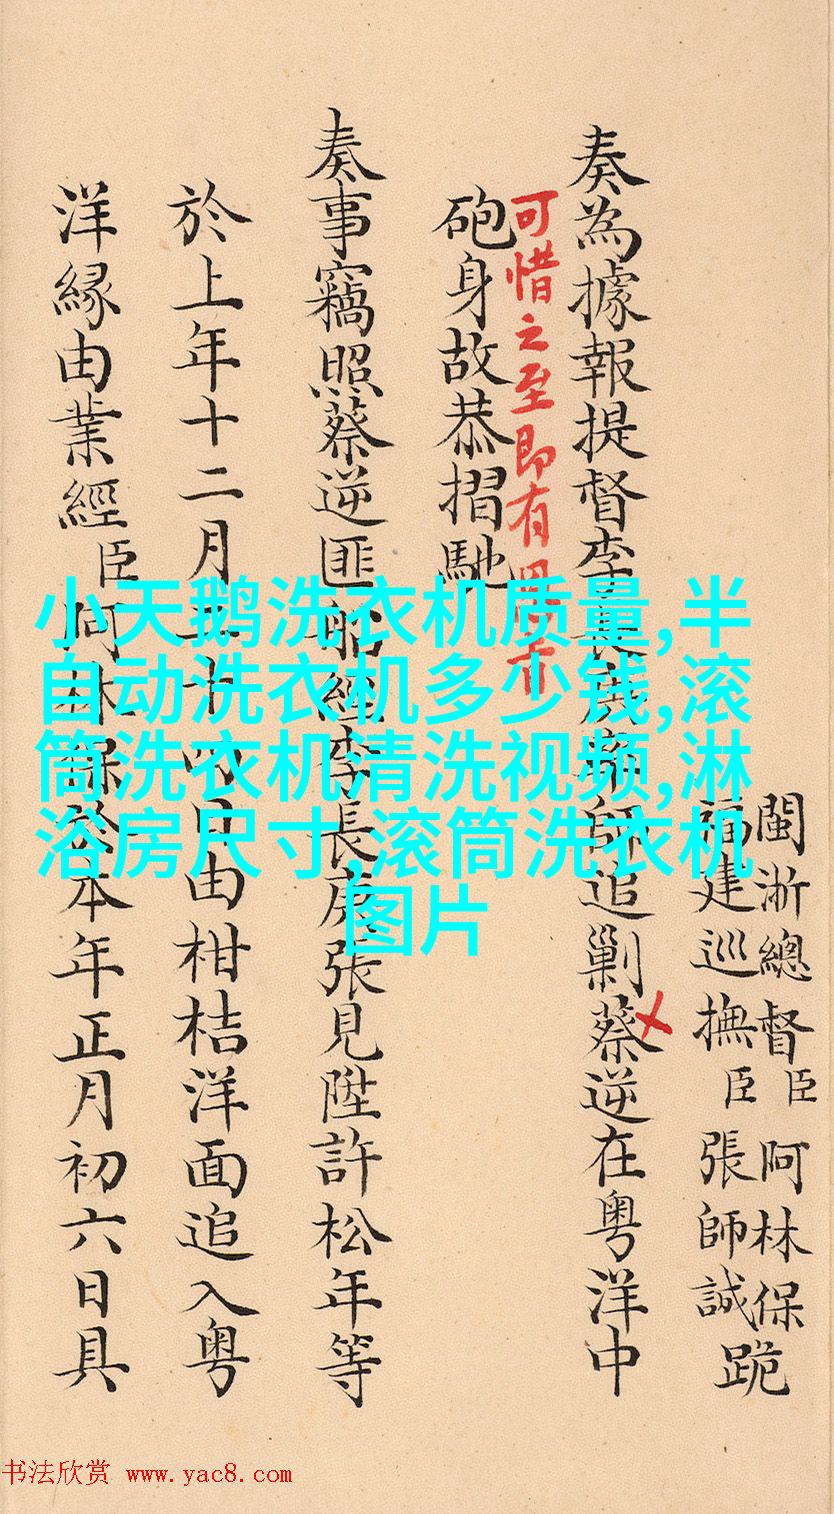 閩浙總督臣阿林保
福建巡撫臣張師誠
跪
奏為據報提督李長庚師追剿蔡逆在粵洋中
可惜之至即有
砲身故恭摺馳
奏事竊照蔡逆匪船經李長庚張見陞許松年等
於上年十二月二十四日由柑桔洋面追入粵
洋緣由業經臣阿林保於本年正月初六日具
小天鹅洗衣机质量,半
自动洗衣机多少钱,滚
筒洗衣机清洗视频,淋
浴房尺寸,滚筒洗衣机
图片
书法欣赏 www.yac8.com